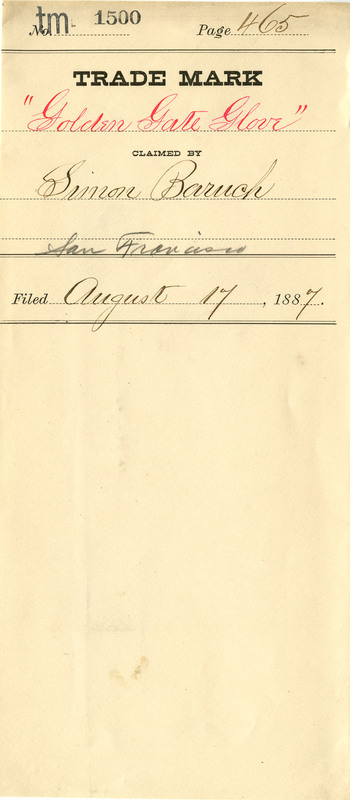 No. tm- 1500 Page 465
TRADE MARK
"Golden Gate Glove"
CLAIMED BY
Simon Baruch
San Francisco
Filed August 17, 1887.